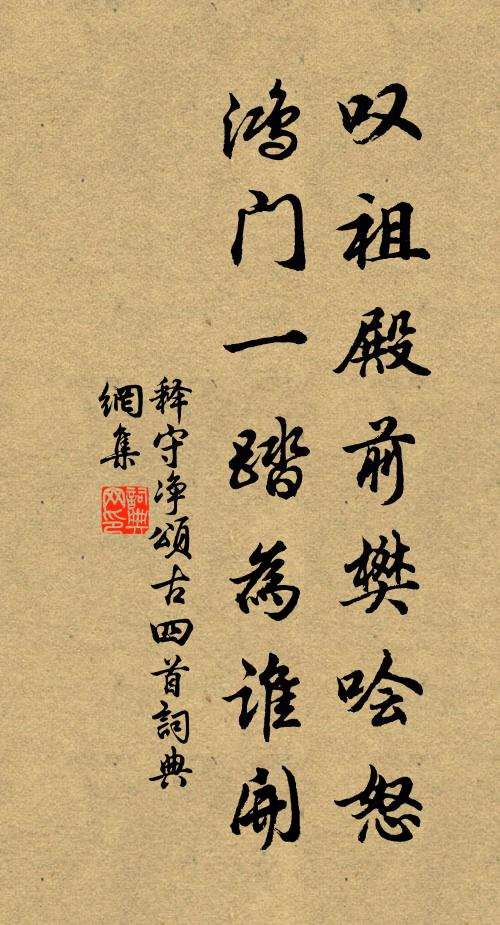 叹祖殿前樊哙怒
鸿门一踏为谁开
释守净颂古四首詞典
網集
詞典网印